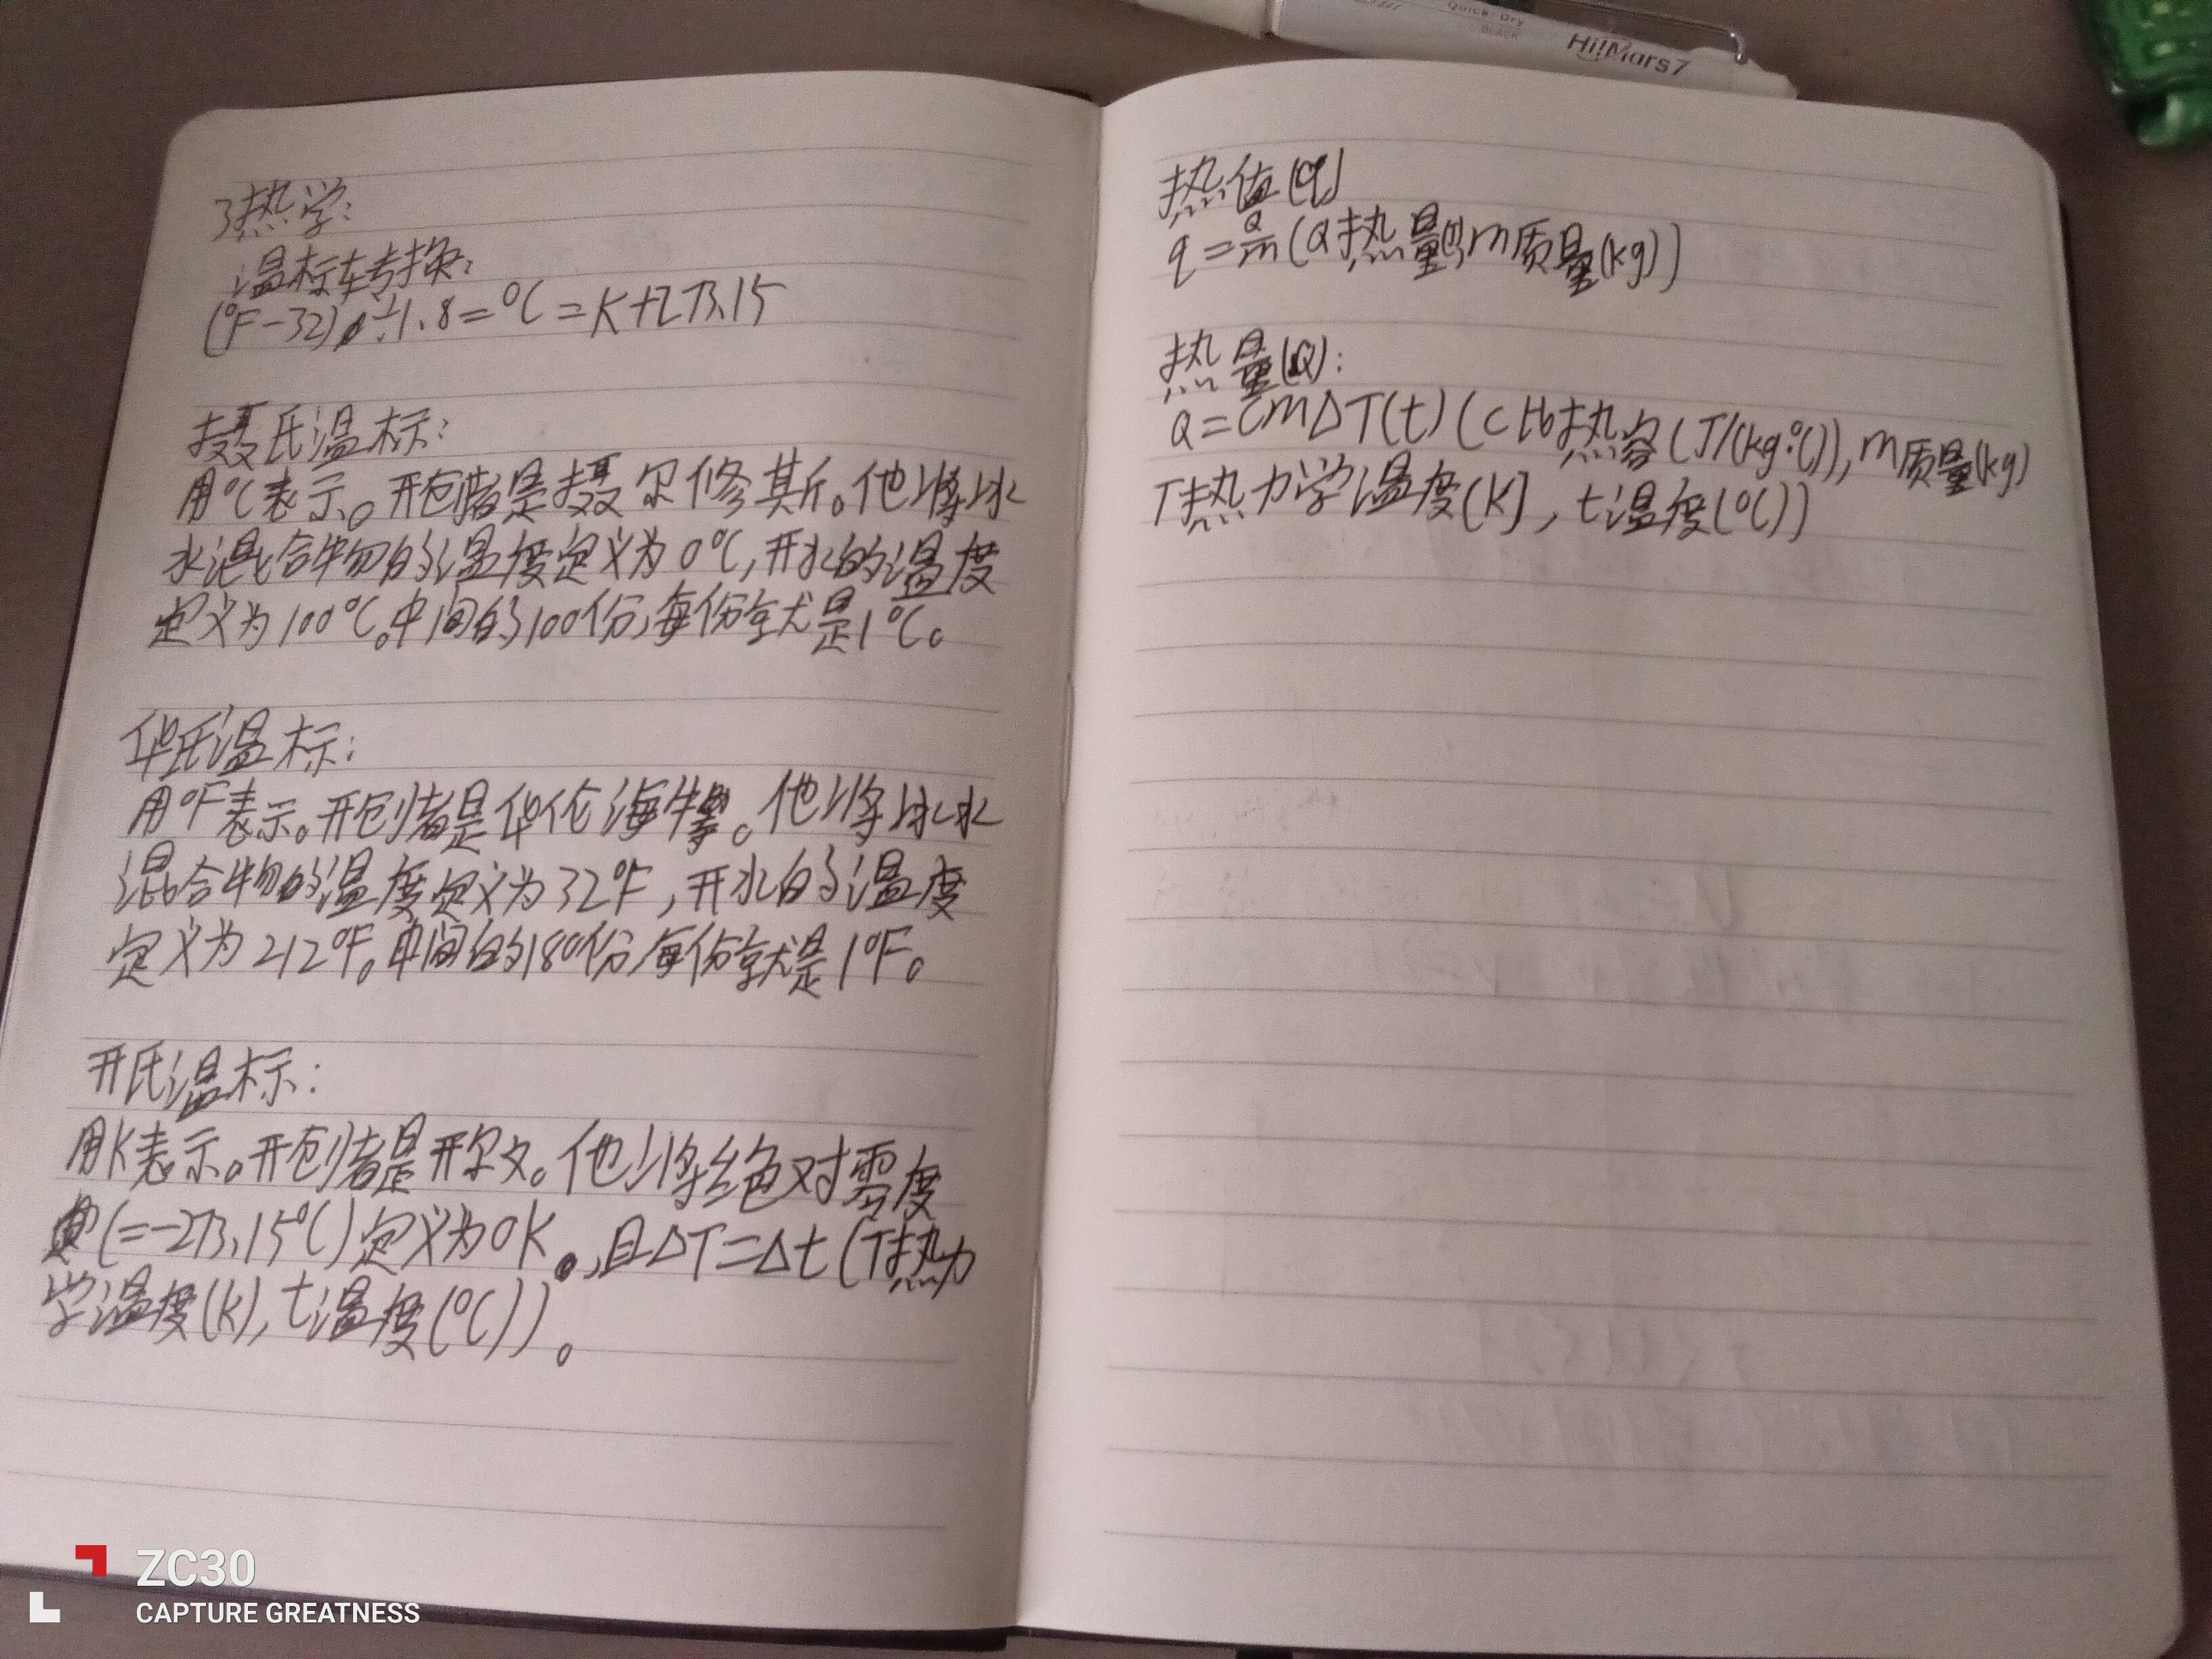 Quick-Dry
BLACK
Hi!Mars7
3热学:
温标转换:
(°F-32)÷1.8=°C=K+273.15
摄氏温标:
用°C表示。开创者是摄尔修斯。他将冰
水混合物的温度定义为0°C,开水的温度
定义为100°C。中间的100份,每份就是1°C。
华氏温标:
用°F表示。开创者是华伦海特。他将冰水
混合物的温度定义为32°F,开水的温度
定义为212°F。中间的180份,每份就是1°F。
开氏温标:
用K表示。开创者是开尔文。他将绝对零度
(=-273.15°C)定义为0K,且ΔT=Δt(T热力
学温度(K),t温度(°C))。
热值(q)
q=Q/m(Q热量(J),m质量(kg))
热量(Q):
Q=CmΔT(t)(C比热容(J/(kg·°C)),m质量(kg)
T热力学温度(K),t温度(°C))
ZC30
CAPTURE GREATNESS